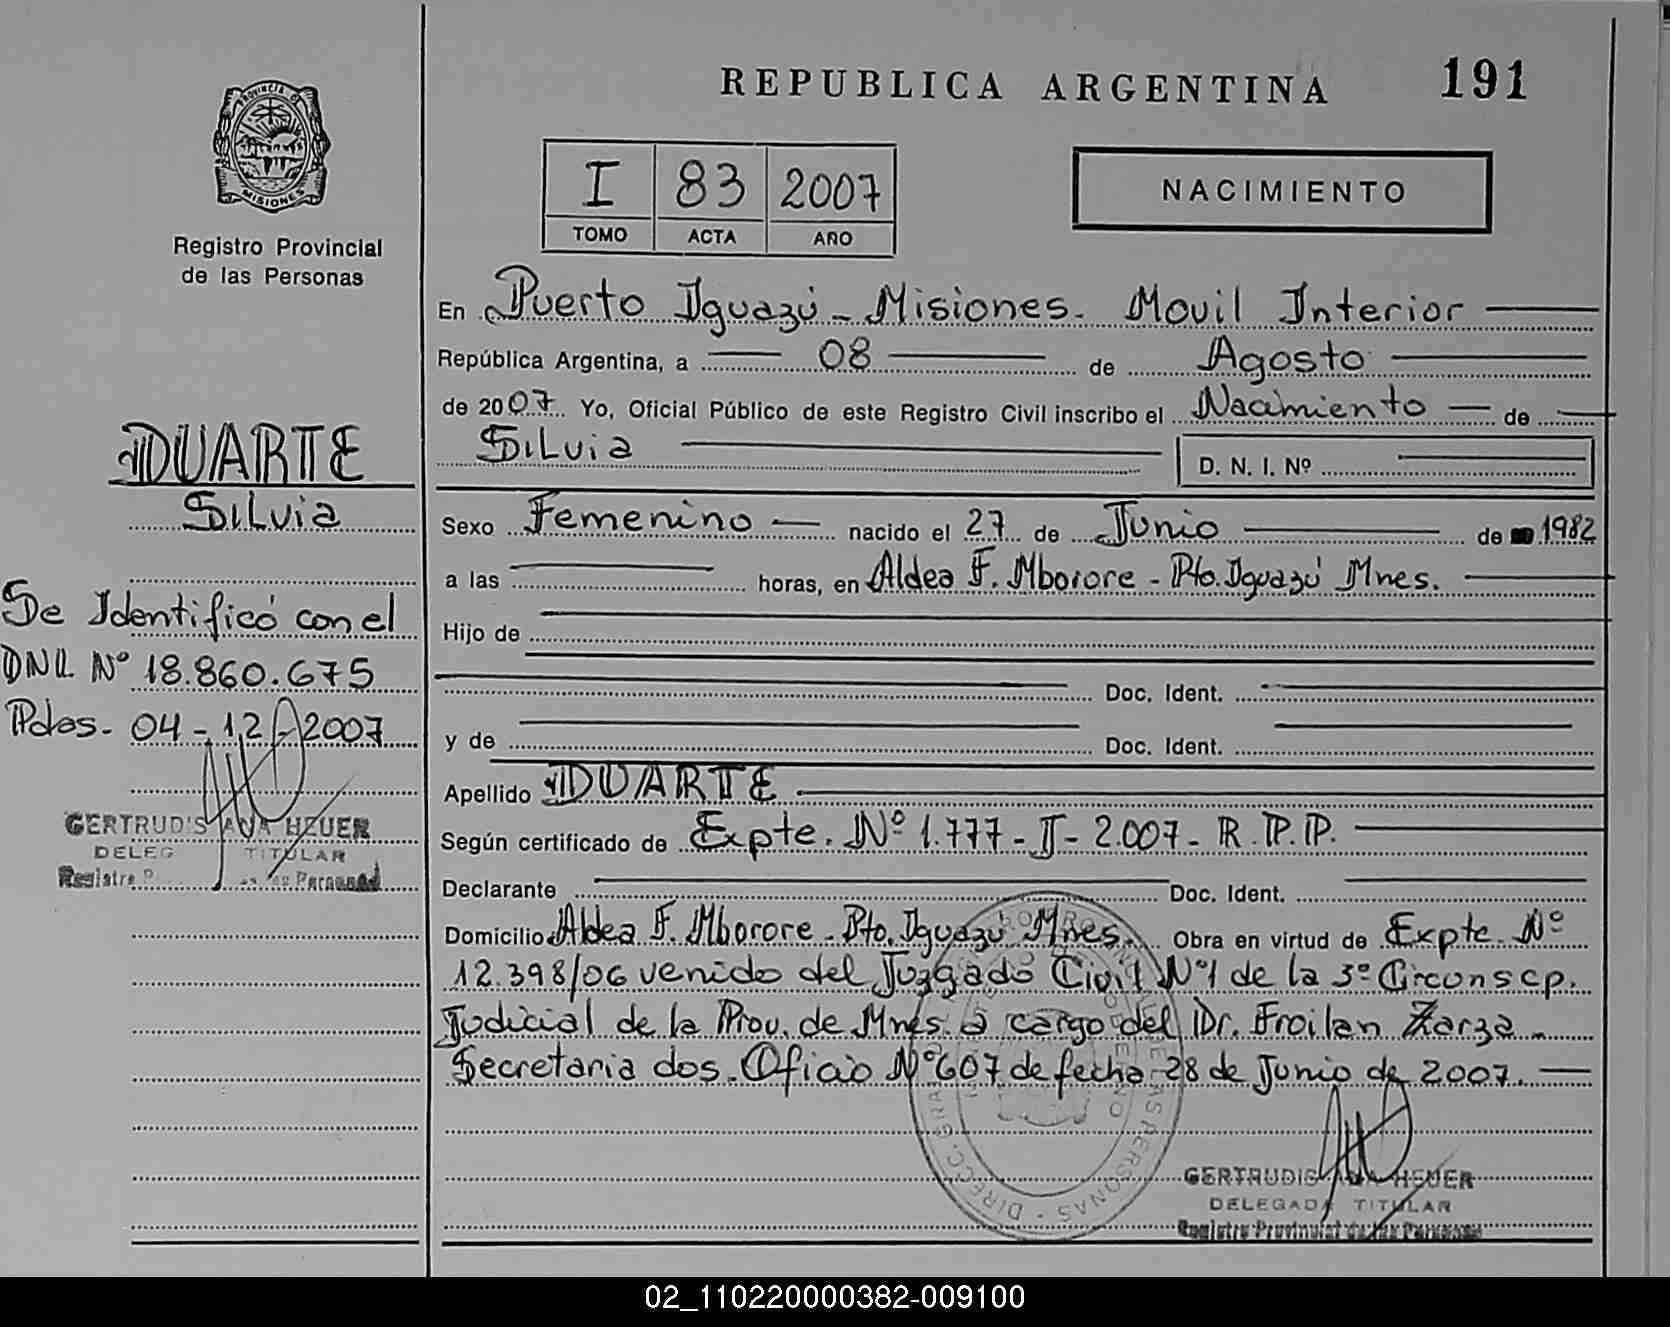 REPUBLICA ARGENTINA
191
PROVINCIA D
MISIONES
Registro Provincial
de las Personas
I 83 2007
TOMO ACTA AÑO
NACIMIENTO
En Puerto Iguazú - Misiones. Movil Interior
República Argentina, a 08 de Agosto
de 2007. Yo, Oficial Público de este Registro Civil inscribo el Nacimiento de
Silvia
D. N. I. Nº
Sexo Femenino nacido el 27 de Junio de 1982
a las horas, en Aldea F. Mborore - Pto. Iguazú Mnes.
Hijo de
Doc. Ident.
y de Doc. Ident.
Apellido DUARTE
Según certificado de Expte. Nº 1.777 - J - 2.007 - R.P.P.
Declarante Doc. Ident.
Domicilio Aldea F. Mborore - Pto. Iguazú Mnes. Obra en virtud de Expte. Nº
12.398/06 venido del Juzgado Civil Nº1 de la 3º Circonscp.
Judicial de la Prov. de Mnes. a cargo del Dr. Froilan Zarza -
Secretaria dos. Oficio Nº607 de fecha 28 de Junio de 2007.
GERTRUDIS ANA HEUER
DELEGADA TITULAR
Registro Provincial de las Personas
DUARTE
Silvia
Se Identificó con el
DNI. Nº 18.860.675
Pdas. 04-12-2007
GERTRUDIS ANA HEUER
DELEG TITULAR
Registro P las Personas
02_110220000382-009100